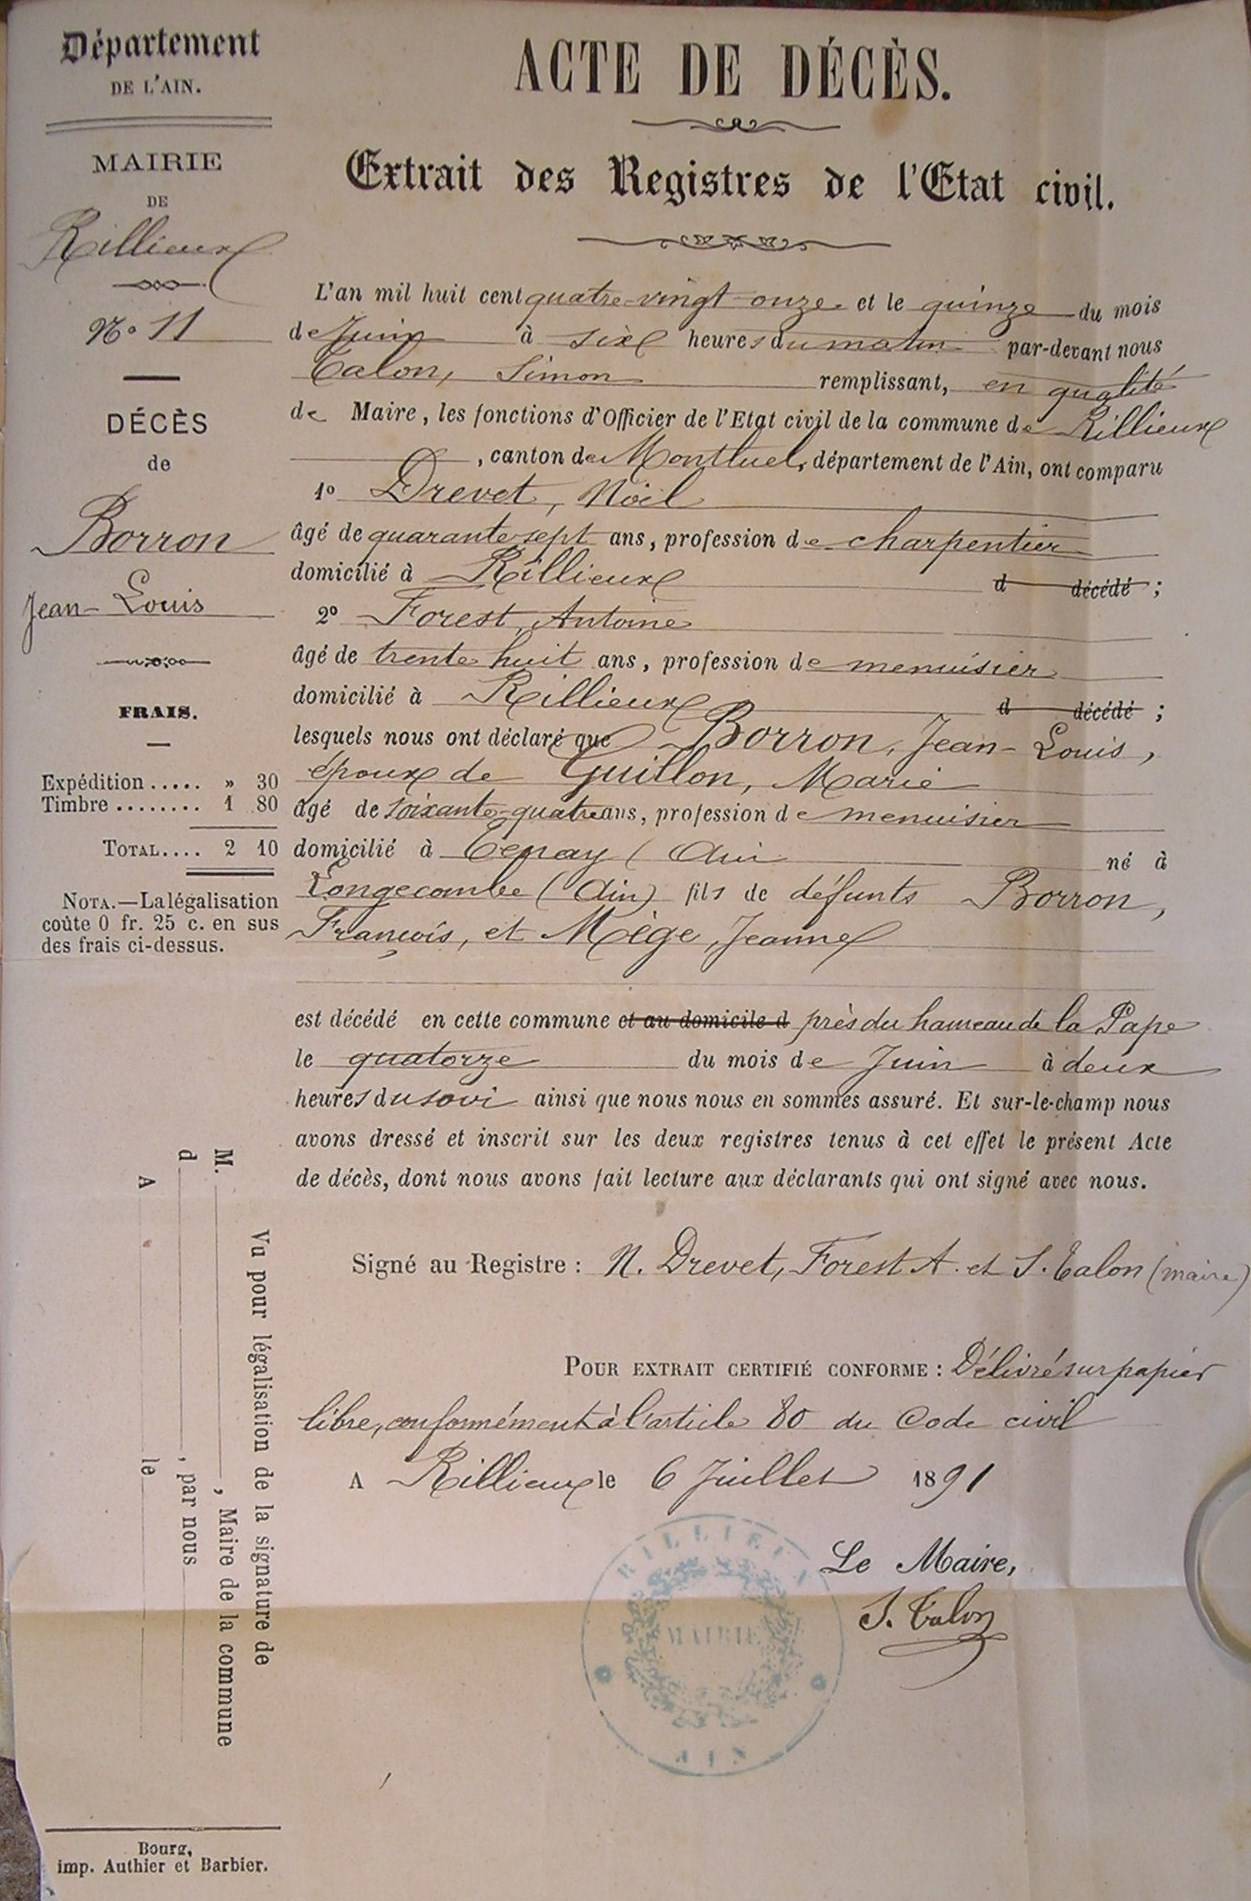 Département
DE L'AIN.
MAIRIE
DE
Rillieux
No 11
DÉCÈS
de
Borron
Jean-Louis
FRAIS.
Expédition ..... » 30
Timbre ........ 1 80
TOTAL.... 2 10
NOTA.—La légalisation
coûte 0 fr. 25 c. en sus
des frais ci-dessus.
ACTE DE DÉCÈS.
Extrait des Registres de l'Etat civil.
L'an mil huit cent quatre-vingt-onze et le quinze du mois
de Juin à six heures du matin par-devant nous
Talon, Simon remplissant, en qualité
de Maire, les fonctions d'Officier de l'Etat civil de la commune de Rillieux
, canton de Montluel, département de l'Ain, ont comparu
1o Drevet, Noël
âgé de quarante-sept ans, profession de charpentier
domicilié à Rillieux d décédé ;
2o Forest, Antoine
âgé de trente huit ans, profession de menuisier
domicilié à Rillieux d décédé ;
lesquels nous ont déclaré que Borron, Jean-Louis,
époux de Guillon, Marie
âgé de soixante-quatre ans, profession de menuisier
domicilié à Tenay (Ain né à
Longecombe (Ain) fils de défunts Borron,
François, et Mège, Jeanne
est décédé en cette commune et au domicile d près du hameau de la Pape
le quatorze du mois de Juin à deux
heures du soir ainsi que nous nous en sommes assuré. Et sur-le-champ nous
avons dressé et inscrit sur les deux registres tenus à cet effet le présent Acte
de décès, dont nous avons fait lecture aux déclarants qui ont signé avec nous.
Signé au Registre : N. Drevet, Forest A. et S. Talon (maire)
POUR EXTRAIT CERTIFIÉ CONFORME : Délivré sur papier
libre, conformément à l'article 80 du Code civil
A Rillieux le 6 Juillet 1891
Le Maire,
S. Talon
RILLIEUX
MAIRIE
AIN
Vu pour légalisation de la signature de
M. , Maire de la commune
d , par nous
A le
Bourg,
imp. Authier et Barbier.